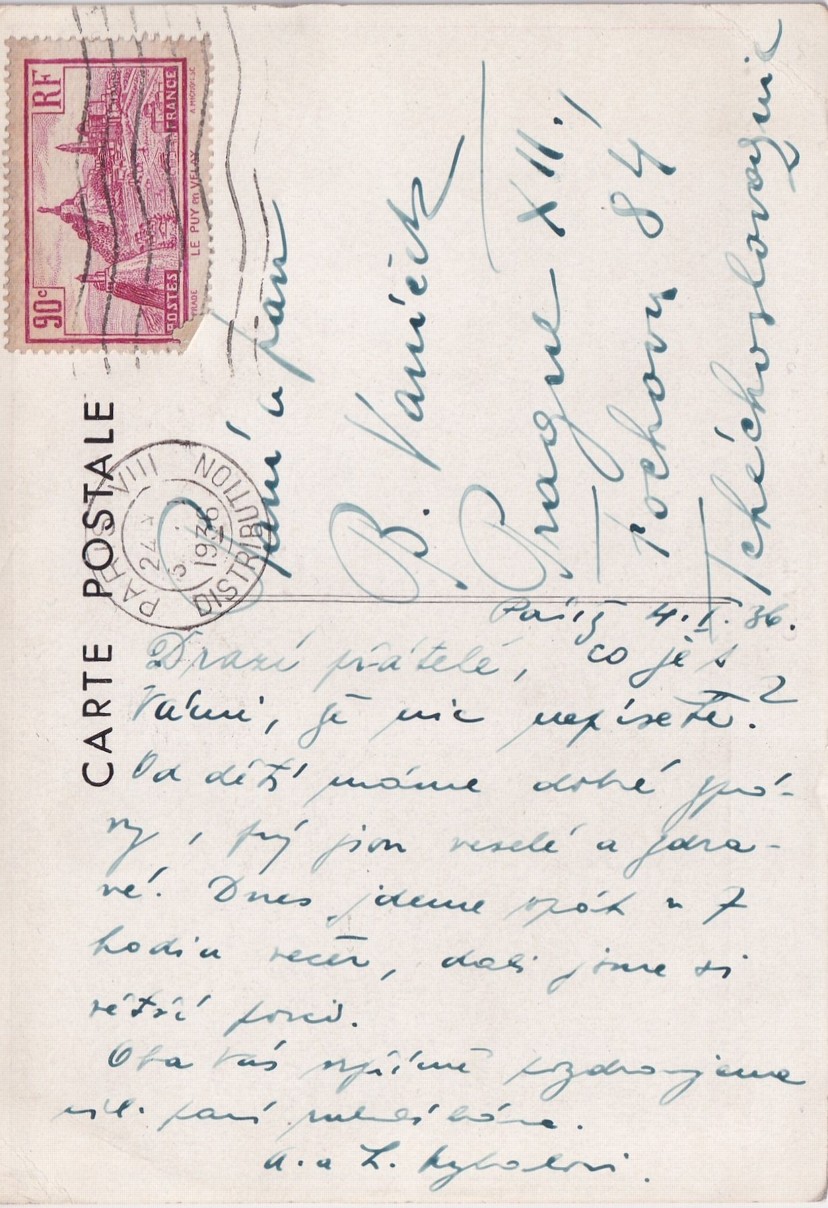 RF
FRANCE
90c
POSTES
LE PUY en VELAY
CARTE POSTALE
PARIS VIII DISTRIBUTION
24
5
1936
Paní a pan
B. Vaníček
Prague XII.
Fochova 84
Tchéchoslovaquie
Paříž 4.I.36.
Drazí přátelé, co je s
Vámi, že nic nepíšete?
Od dětí máme dobré zprá-
vy, prý jsou veselé a zdra-
vé. Dnes jdeme opět v 7
hodin večer, dali jsme si
větší porci.
Oba Vás upřímně pozdravujeme
mil. paní ruku líbáme.
A. a L.